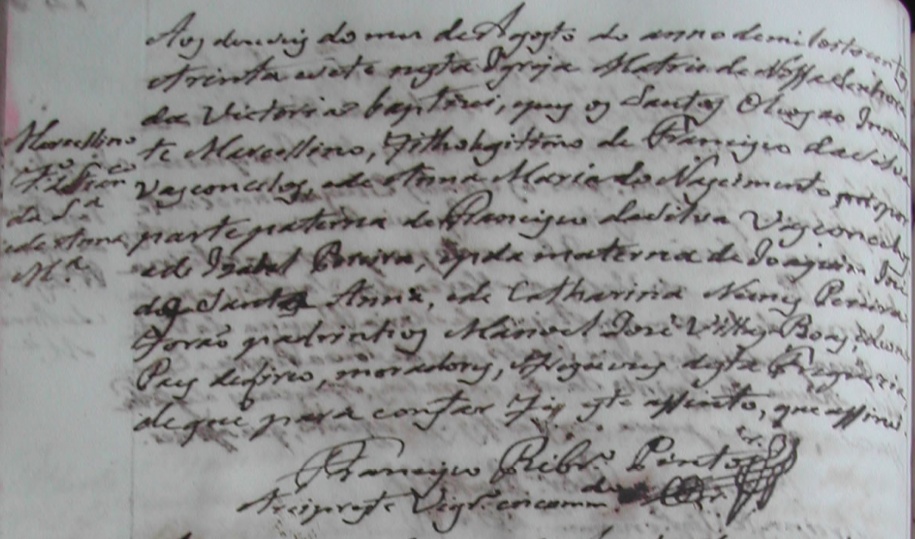 Aos deseseis do mes de Agosto do anno de mil oitocentos
e trinta e sete nesta Igreja Matris de Nossa Senhora
da Victoria baptisei, e pus os Santos Oleos ao Inocen
te Marcellino, Filho legitimo de Francisco da Silva
Vasconcelos, e de Anna Maria do Nascimento neto por
parte paterna de Francisco da Silva Vasconcelos
e de Izabel Pereira, e pela materna de Joaquim José
de Santa Anna, e de Catharina Nunes Pereira
Forão padrinhos Manoel José Villas Boas, e
Pires, moradores, e desta Freguezia
de que para constar Fis este assento, que assinei
Francisco Ribro Pinto
Arcipreste Vigro encommdo
Marcellino
F. de Franco
da Sa
e de Anna
Ma